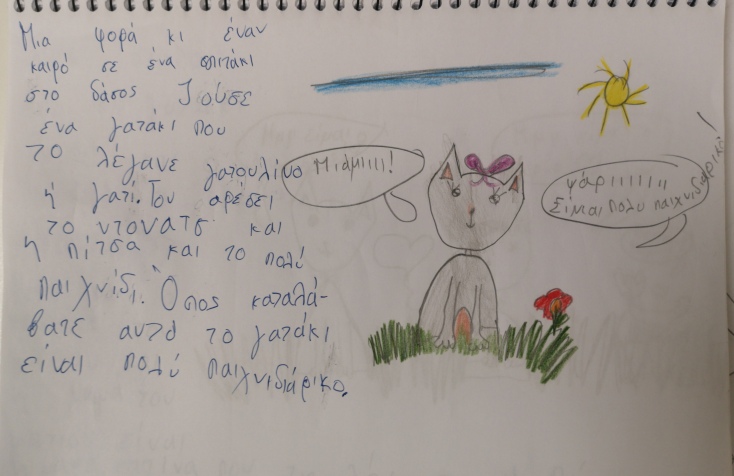 Μια φορά κι έναν
καιρό σε ένα σπιτάκι
στο δάσος Ζούσε
ένα γατάκι που
το λέγανε γατουλίνο
ή γατί. Του αρέσει
το ντονατσ και
ή πίτσα και το πολύ
παιχνίδι. Όπος καταλά-
βατε αυτό το γατάκι
είναι πολύ παιχνιδιάρικο.
Μιάμιιιι!
Ψάριιιιιιι
Είμαι πολυ παιχνιδιάρικο!